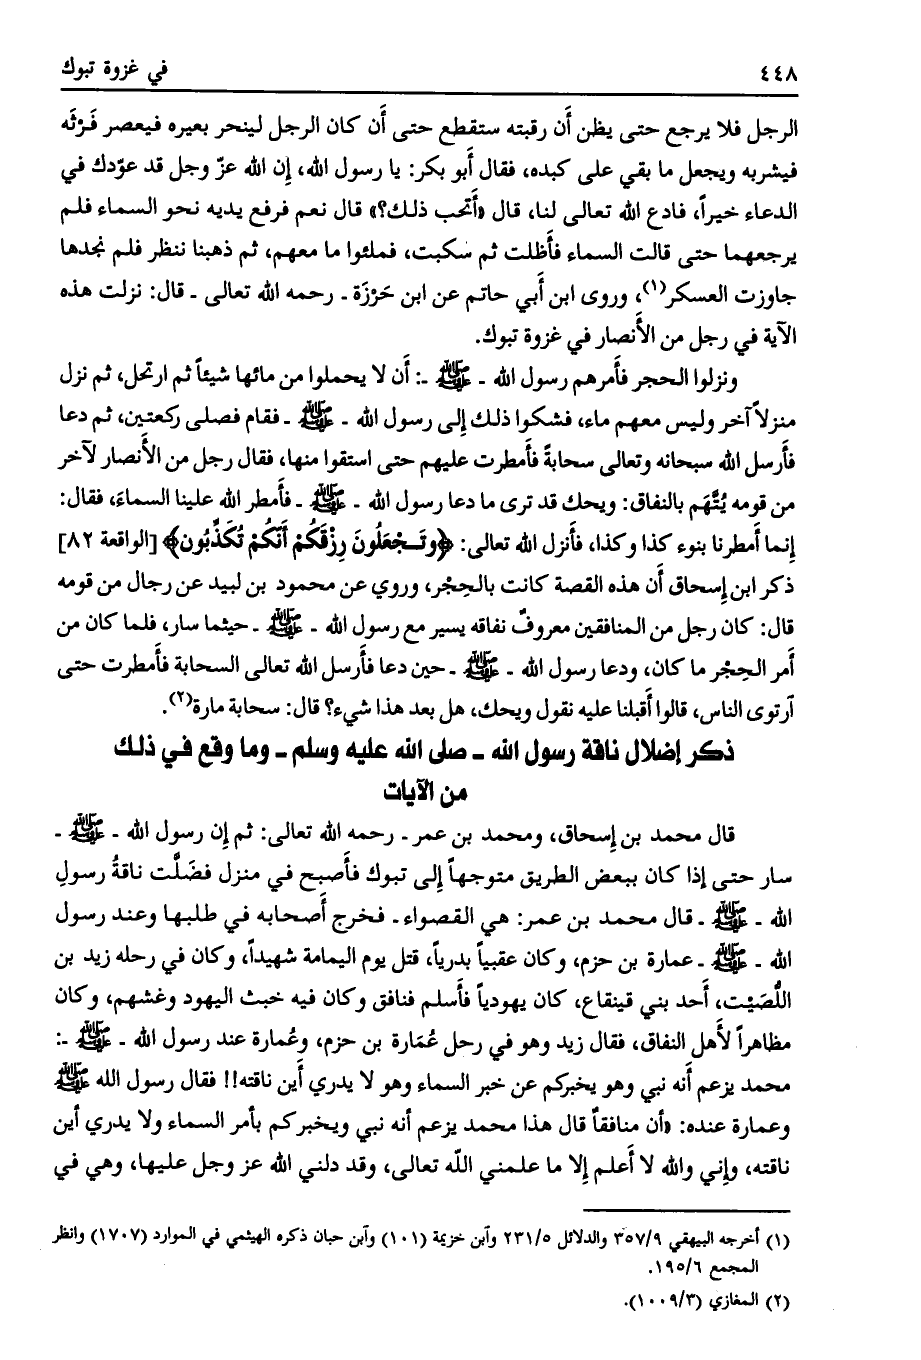 ٤٤٨ في غزوة تبوك
الرجل فلا يرجع حتى يظن أن رقبته ستقطع حتى أن كان الرجل لينحر بعيره فيعصر فَرْثَه
فيشربه ويجعل ما بقي على كبده، فقال أبو بكر: يا رسول الله، إن الله عزّ وجل قد عوّدك في
الدعاء خيراً، فادع الله تعالى لنا، قال «أتحب ذلك؟» قال نعم فرفع يديه نحو السماء فلم
يرجعهما حتى قالت السماء فأظلت ثم سكبت، فملئوا ما معهم، ثم ذهبنا ننظر فلم نجدها
جاوزت العسكر(١)، وروى ابن أبي حاتم عن ابن حَرْزَة ـ رحمه الله تعالى ـ قال: نزلت هذه
الآية في رجل من الأنصار في غزوة تبوك.
ونزلوا الحجر فأمرهم رسول الله ـ ﷺ ـ: أن لا يحملوا من مائها شيئاً ثم ارتحل، ثم نزل
منزلاً آخر وليس معهم ماء، فشكوا ذلك إلى رسول الله ـ ﷺ ـ فقام فصلى ركعتين، ثم دعا
فأرسل الله سبحانه وتعالى سحابةً فأمطرت عليهم حتى استقوا منها، فقال رجل من الأنصار لآخر
من قومه يُتَّهَم بالنفاق: ويحك قد ترى ما دعا رسول الله ـ ﷺ ـ فأمطر الله علينا السماءَ، فقال:
إنما أمطرنا بنوء كذا وكذا، فأنزل الله تعالى: ﴿وتَجْعَلُونَ رِزْقَكُمْ أَنَّكُمْ تُكَذِّبُون﴾ [الواقعة ٨٢]
ذكر ابن إسحاق أن هذه القصة كانت بالحِجْر، وروي عن محمود بن لبيد عن رجال من قومه
قال: كان رجل من المنافقين معروفٌ نفاقه يسير مع رسول الله ـ ﷺ ـ حيثما سار، فلما كان من
أمر الحِجْر ما كان، ودعا رسول الله ـ ﷺ ـ حين دعا فأرسل الله تعالى السحابة فأمطرت حتى
آرتوى الناس، قالوا أقبلنا عليه نقول ويحك، هل بعد هذا شيء؟ قال: سحابة مارة(٢).
ذكر إضلال ناقة رسول الله ـ صلى الله عليه وسلم ـ وما وقع في ذلك
من الآيات
قال محمد بن إسحاق، ومحمد بن عمر ـ رحمه الله تعالى: ثم إن رسول الله ـ ﷺ ـ
سار حتى إذا كان ببعض الطريق متوجهاً إلى تبوك فأصبح في منزل فضَلَّت ناقةُ رسولِ
الله ـ ﷺ ـ قال محمد بن عمر: هي القصواء ـ فخرج أصحابه في طلبها وعند رسول
الله ـ ﷺ ـ عمارة بن حزم، وكان عقبياً بدرياً، قتل يوم اليمامة شهيداً، وكان في رحله زيد بن
اللُّصَيْت، أحد بني قينقاع، كان يهودياً فأسلم فنافق وكان فيه خبث اليهود وغشهم، وكان
مظاهراً لأهل النفاق، فقال زيد وهو في رحل عُمَارة بن حزم، وعُمارة عند رسول الله ـ ﷺ ـ:
محمد يزعم أنه نبي وهو يخبركم عن خبر السماء وهو لا يدري أين ناقته!! فقال رسول الله ﷺ
وعمارة عنده: «أن منافقاً قال هذا محمد يزعم أنه نبي ويخبركم بأمر السماء ولا يدري أين
ناقته، وإني والله لا أعلم إلا ما علمني اللّه تعالى، وقد دلني الله عز وجل عليها، وهي في
(١) أخرجه البيهقي ٣٥٧/٩ والدلائل ٢٣١/٥ وآبن خزيمة (١٠١) وآبن حبان ذكره الهيثمي في الموارد (١٧٠٧) وانظر
المجمع ١٩٥/٦.
(٢) المغازي (١٠٠٩/٣).